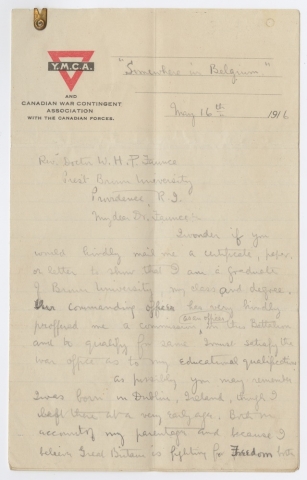 Y.M.C.A.
AND
CANADIAN WAR CONTINGENT
ASSOCIATION
WITH THE CANADIAN FORCES.
"Somewhere in Belgium"
May 16th 1916.
Rev. Doctor W. H. P. Faunce
Brown University
Providence, R. I.
My dear Dr. Faunce:
I wonder if you
would kindly mail me a certificate, paper
or letter to show that I am a graduate
of Brown University, my class and degree.
commanding officer has very kindly
proffered me a commission, in this Battalion
(as an officer)
and to qualify for same I must satisfy the
war office as to my educational qualifications
as possibly you may remember
I was born in Dublin, Ireland, though I
left there at a very early age. Both on
account of my parentage and because I
believe Great Britain is fighting for Freedom both